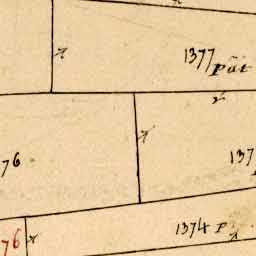 1377
Pât
76
137
1374 P.
76